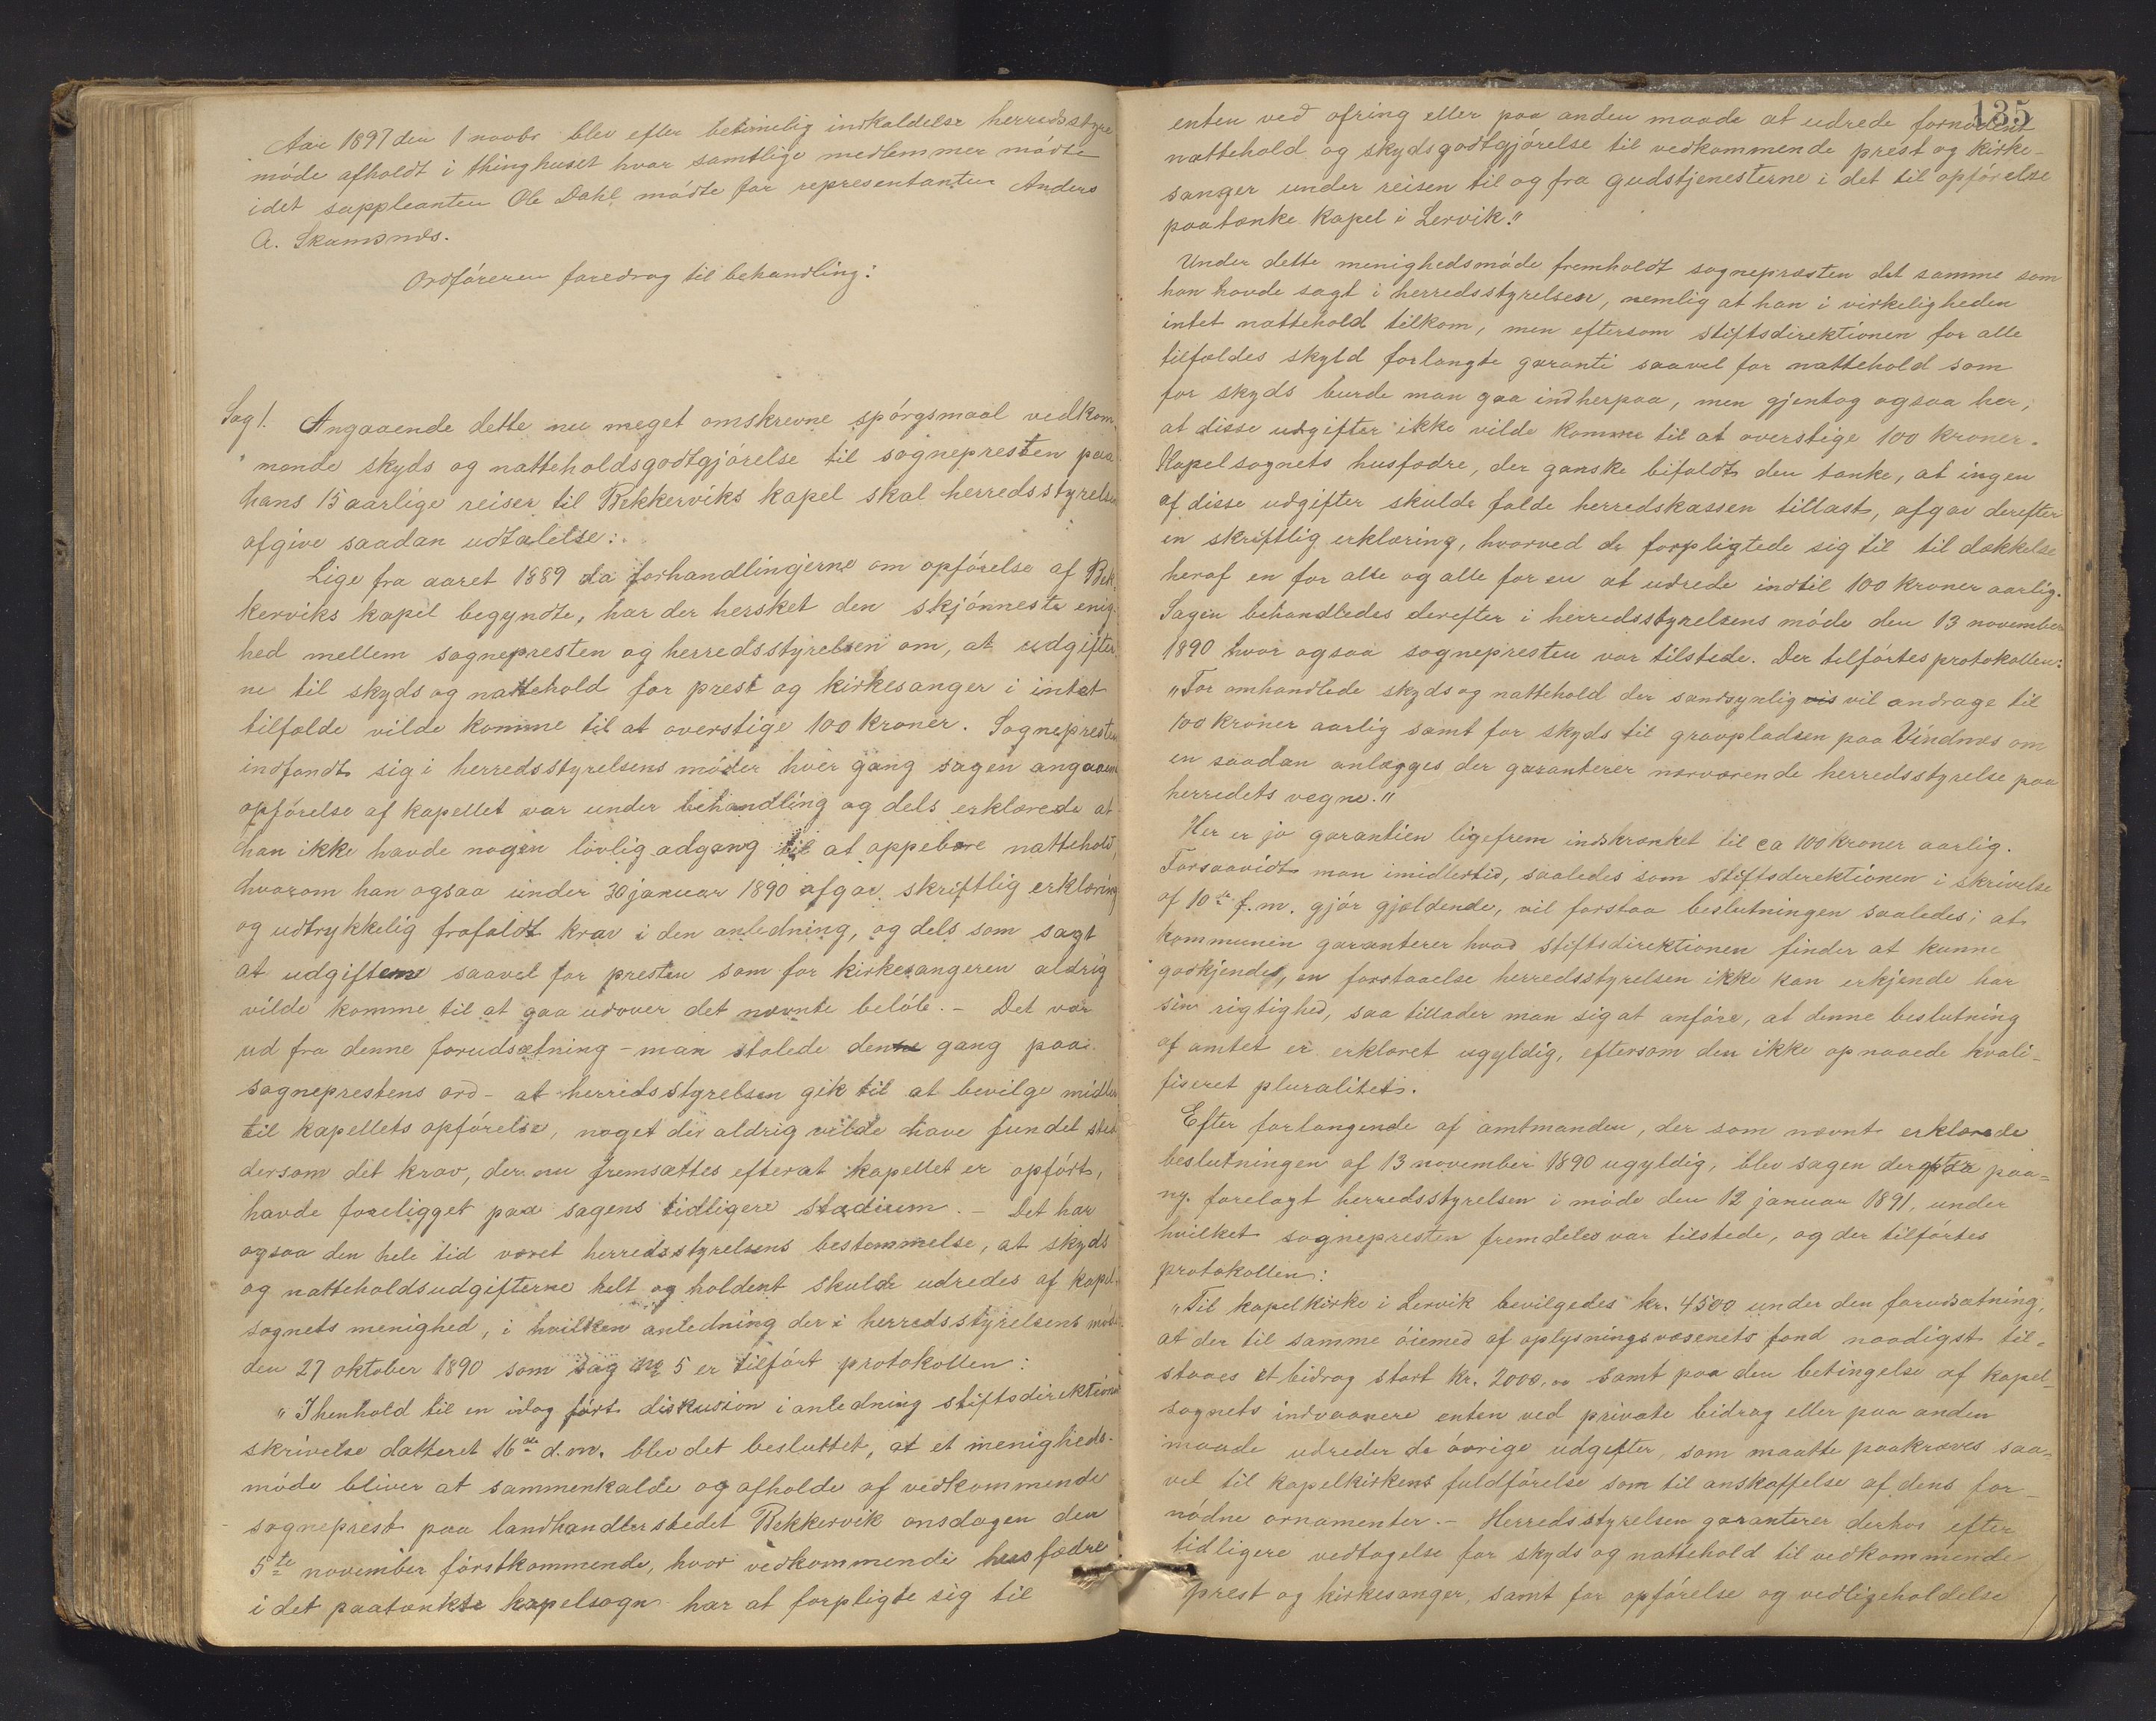 Aar 1897 den 1 novbr blev efter betimelig indkaldelse herredsstyre
möde afholdt i thinghuset hvor samtlige medlemmer mödte
idet suppleanten Ole Dahl mödte for representanten Anders
A. Skamsnæs.
Ordföreren foredrog til behandling:
Sag 1. Angaaende dette nu meget omskrevne spörgsmaal vedkom
mende skyds og natteholdsgodtgjörelse til sognepresten paa
hans 15 aarlige reiser til Bekkerviks kapel skal herredsstyrelsen
afgive saadan udtalelse:
Lige fra aaret 1889 da forhandlingerne om opförelse af Bek
kerviks kapel begyndte, har der hersket den skjönneste enig
hed mellem sognepresten og herredsstyrelsen om, at udgifter
ne til skyds og nattehold for prest og kirkesanger i intet
tilfælde vilde komme til at overstige 100 kroner. Sognepresten
indfandt sig i herredsstyrelsens möder hver gang sagen angaaende
opförelse af kapellet var under behandling og dels erklærede at
han ikke havde nogen lovlig adgang til at oppebære nattehold,
hvorom han ogsaa under 30 januar 1890 afgav skriftlig erklæring
og udtrykkelig frafaldt krav i den anledning, og dels som sagt
at udgifterne saavel for presten som for kirkesangeren aldrig
vilde komme til at gaa udover det nævnte belöb. – Det var
ud fra denne forudsætning – man stolede denne gang paa
sogneprestens ord – at herredsstyrelsen gik til at bevilge midler
til kapellets opförelse, noget der aldrig vilde have fundet sted
dersom det krav, der nu fremsættes efterat kapellet er opfört,
havde foreligget paa sagens tidligere stadium. – Det har
ogsaa den hele tid været herredsstyrelsens bestemmelse, at skyds
og natteholdsudgifterne helt og holdent skulde udredes af kapel
sognets menighed, i hvilken anledning der i herredsstyrelsens möde
den 27 oktober 1890 som sag No 5 er tilfört protokollen:
"I henhold til en idag fört diskusion i anledning stiftsdirektionens
skrivelse datteret 16de d.m. blev det besluttet, at et menigheds-
möde bliver at sammenkalde og afholde af vedkommende
sogneprest paa landhandlerstedet Bekkervik onsdagen den
5te november förstkommende, hvor vedkommende husfædre
i det paatænkte kapelsogn har at forpligte sig til
135
enten ved ofring eller paa anden maade at udrede fornödent
nattehold og skydsgodtgjörelse til vedkommende prest og kirke-
sanger under reisen til og fra gudstjenesterne i det til opförelse
paatænke kapel i Lervik."
Under dette menighedsmöde fremholdt sognepræsten det samme som
han havde sagt i herredsstyrelsen, nemlig at han i virkeligheden
intet nattehold tilkom, men eftersom stiftsdirektionen for alle
tilfældes skyld forlangte garanti saavel for nattehold som
for skyds burde man gaa ind herpaa, men gjentog ogsaa her,
at disse udgifter ikke vilde komme til at overstige 100 kroner.
Kapelsognets husfædre, der ganske bifaldt den tanke, at ingen
af disse udgifter skulde falde herredskassen tillast, afgav derefter
en skriftlig erklæring, hvorved de forpligtede sig til til dækkelse
heraf en for alle og alle for en at udrede indtil 100 kroner aarlig.
Sagen behandledes derefter i herredsstyrelsens möde den 13 november
1890 hvor ogsaa sognepresten var tilstede. Der tilförtes protokollen:
"For omhandlede skyds og nattehold der sandsynlig vis vil andrage til
100 kroner aarlig samt for skyds til gravpladsen paa Vindnæs om
en saadan anlægges, der garanterer nærværende herredsstyrelse paa
herredets vegne."
Her er jo garantien ligefrem indskrænket til ca 100 kroner aarlig.
Forsaavidt man imidlertid, saaledes som stiftsderektionen i skrivelse
af 10de f.m. gjör gjældende, vil forstaa beslutningen saaledes; at
kommunen garanterer hvad stiftsdirektionen finder at kunne
godkjendes, en forstaaelse herredsstyrelsen ikke kan erkjende har
sin rigtighed, saa tillader man sig at anföre, at denne beslutning
af amtet er erklæret ugyldig, eftersom den ikke opnaaede kvali-
fiseret pluralitet.
Efter forlangende af amtmanden, der som nævnt erklærede
beslutningen af 13 november 1890 ugyldig, blev sagen derpaa paa-
ny forelagt herredsstyrelsen i möde den 12 januar 1891, under
hvilket sognepresten fremdeles var tilstede, og der tilförtes
protokollen:
"Til kapelkirke i Lervik bevilgedes kr. 4500 under den forudsætning,
at der til samme öiemed af oplysningsvæsenets fond naadigst til-
staaes et bidrag stort kr. 2000,00 samt paa den betingelse af kapel-
sognets indvaanere enten ved private bidrag eller paa anden
maade udreder de övrige udgifter, som maatte paakræves saa-
vel til kapelkirkens fuldförelse som til anskaffelse af dens for-
nödne ornamenter. – Herredsstyrelsen garanterer derhos efter
tidligere vedtagelse for skyds og nattehold til vedkommende
prest og kirkesanger, samt for opförelse og vedligeholdelse